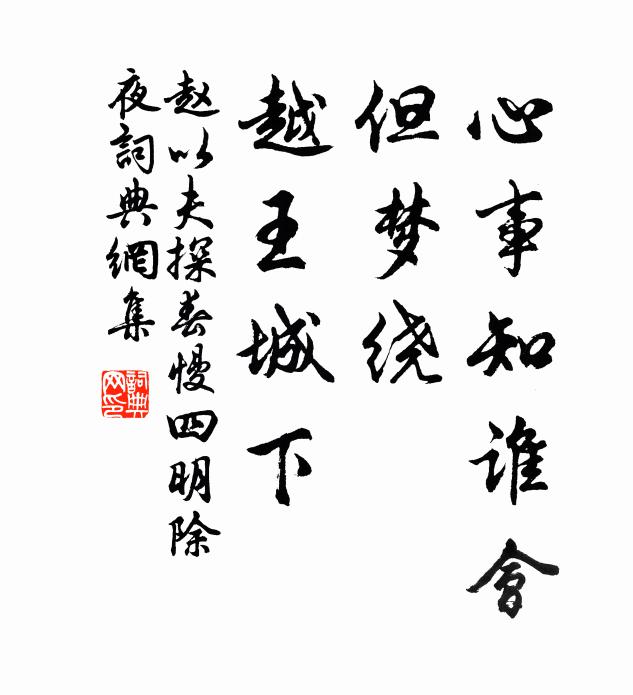 心事知谁會
但梦绕
越王城下
赵以夫探春慢四明除
夜詞典網集
詞典
网印